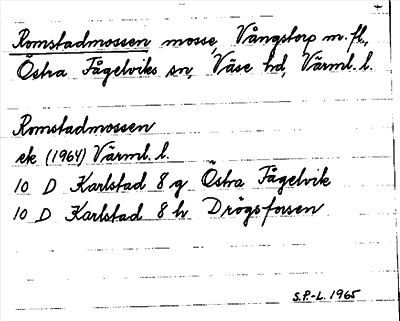 Romstadmossen mosse, Vångstorp m. fl.,
Östra Fågelviks sn, Väse hd, Värml. l.
Romstadmossen
ek (1964) Värml. l.
10 D Karlstad 8 g Östra Fågelvik
10 D Karlstad 8 h Drögsforsen
S.P.-L. 1965